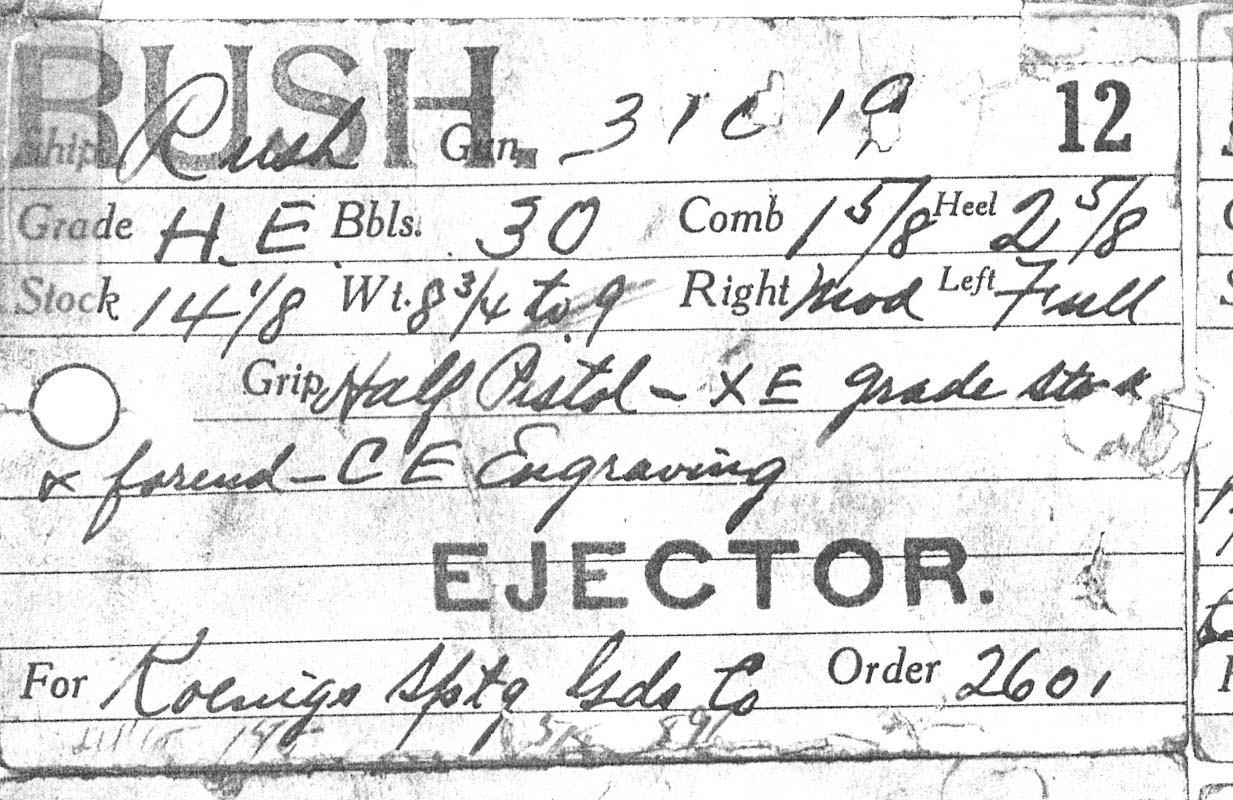 RUSH.
Ship Rush Gun 12
Grade H.E. Bbls. 30 Comb 1 5/8 Heel 2 5/8
Stock 14 1/8 Wt. 8 3/4 to 9 Right Mod Left Full
Grip Half Pistol - XE grade stock
& forend - CE Engraving
EJECTOR.
For Koenigs Sptg Gds Co Order 2601